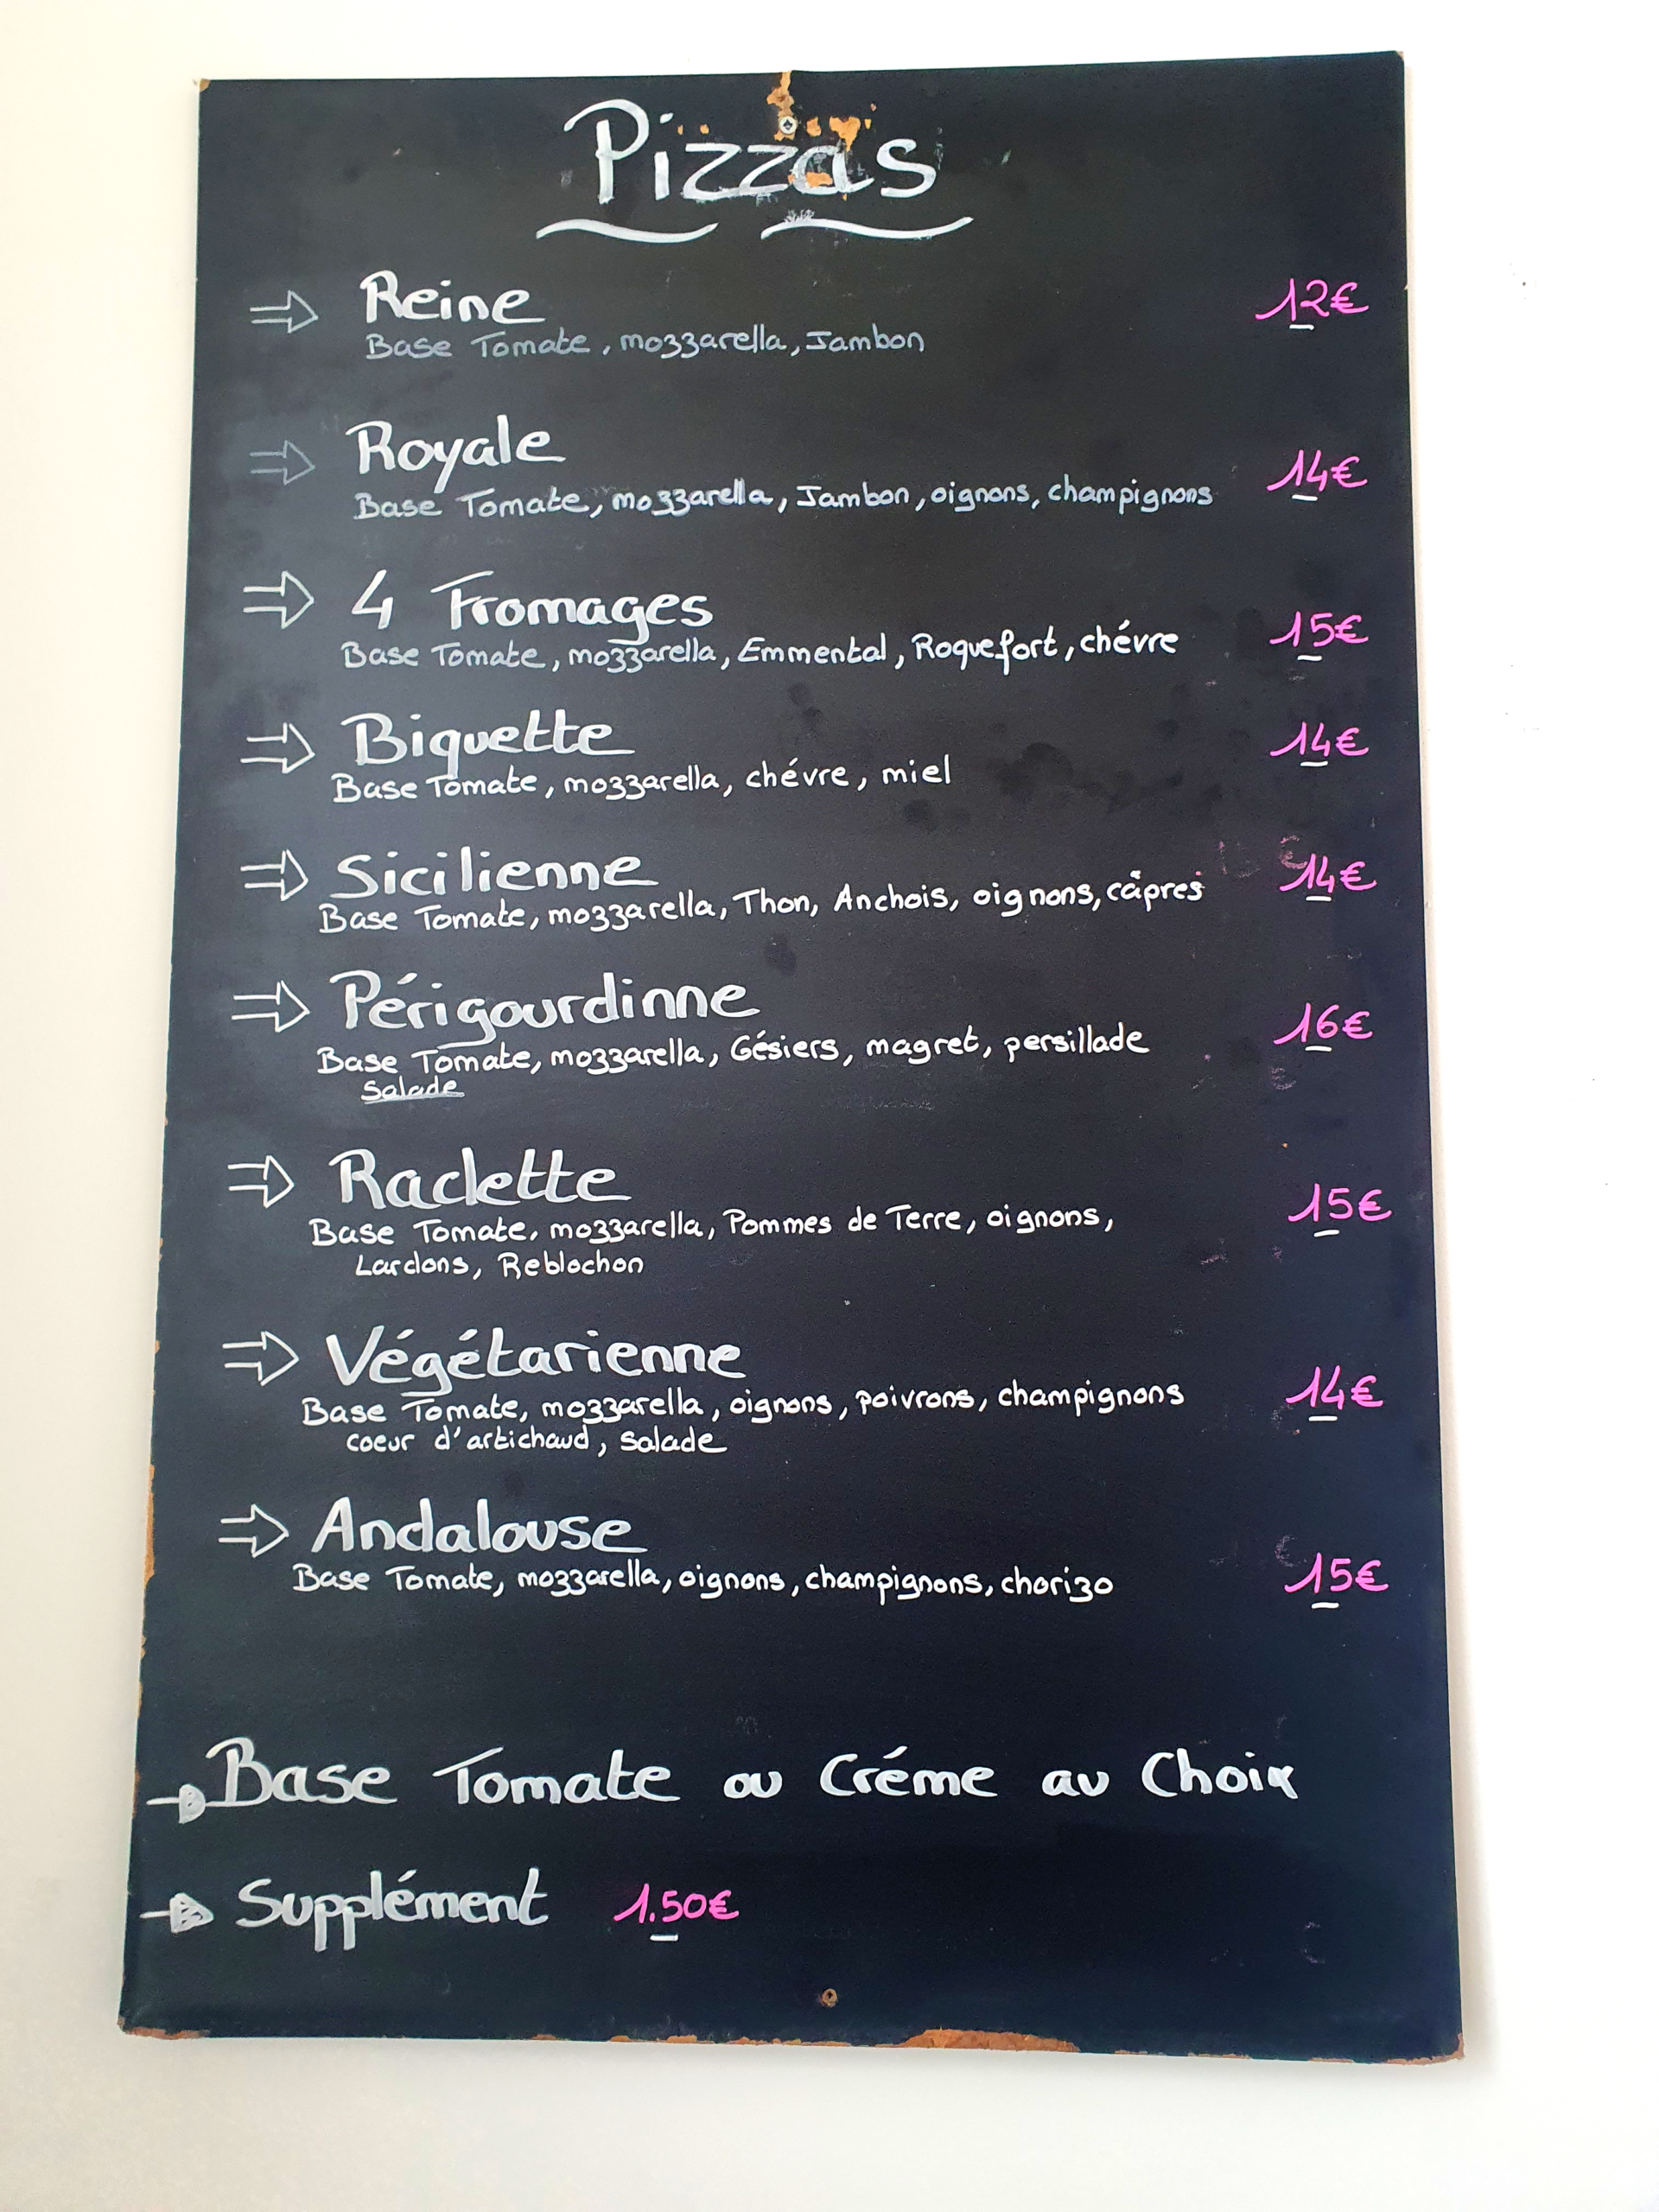 Pizzas
⇒ Reine 12€
Base Tomate, mozzarella, Jambon
⇒ Royale 14€
Base Tomate, mozzarella, Jambon, oignons, champignons
⇒ 4 Fromages 15€
Base Tomate, mozzarella, Emmental, Roquefort, chévre
⇒ Biquette 14€
Base Tomate, mozzarella, chévre, miel
⇒ Sicilienne 14€
Base Tomate, mozzarella, Thon, Anchois, oignons, câpres
⇒ Périgourdinne 16€
Base Tomate, mozzarella, Gésiers, magret, persillade
Salade
⇒ Raclette 15€
Base Tomate, mozzarella, Pommes de Terre, oignons,
Lardons, Reblochon
⇒ Végétarienne 14€
Base Tomate, mozzarella, oignons, poivrons, champignons
coeur d'artichaud, Salade
⇒ Andalouse 15€
Base Tomate, mozzarella, oignons, champignons, chorizo
→ Base Tomate ou Créme au Choix
→ Supplément 1.50€